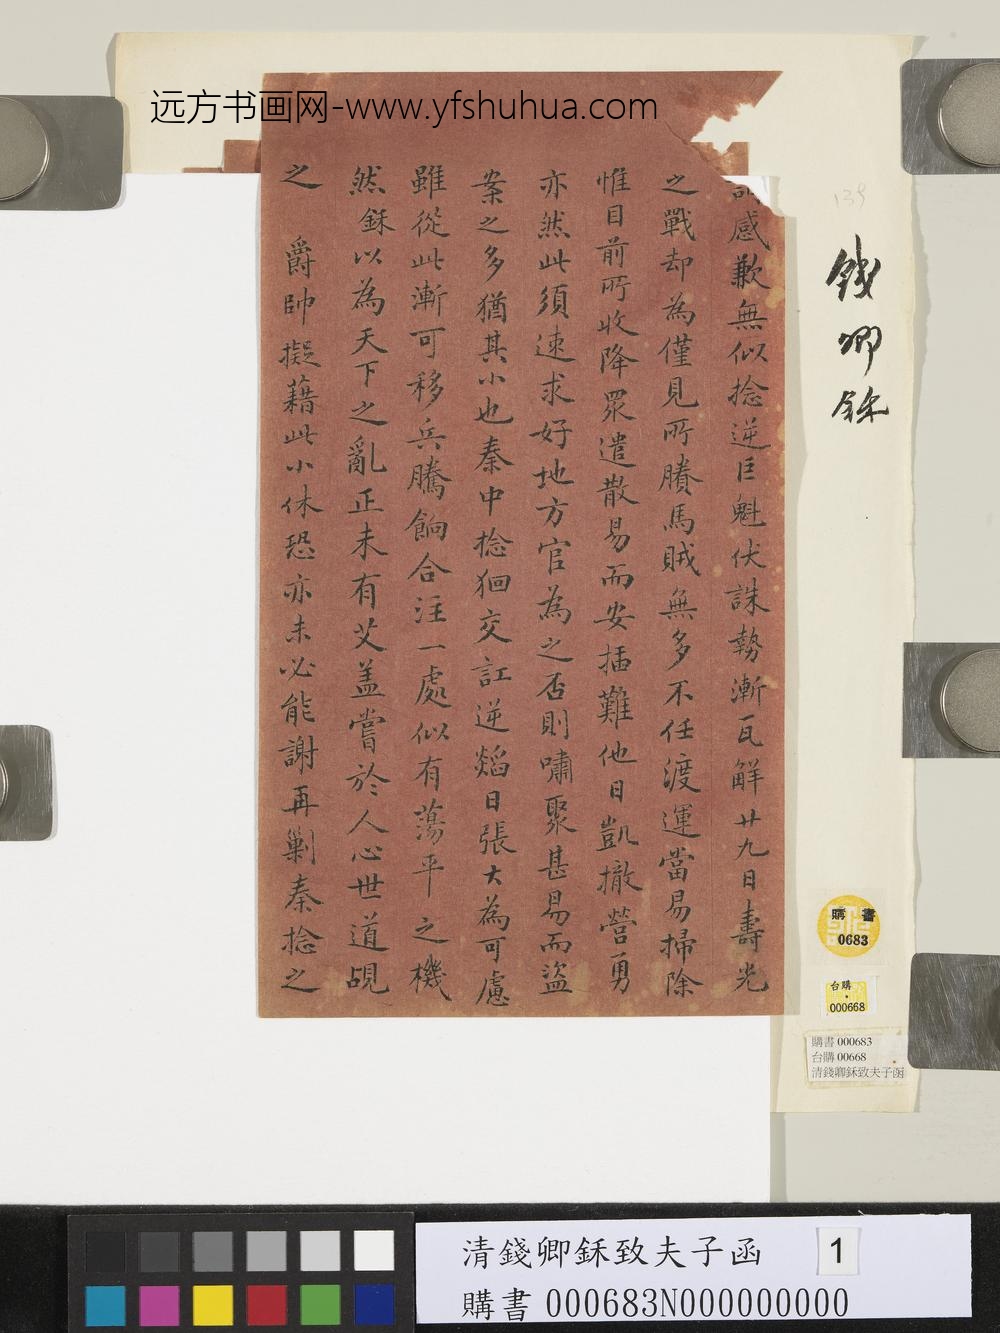 远方书画网-www.yfshuhua.com
感歉無似捻逆巨魁伏誅勢漸瓦解廿九日壽光
之戰却為僅見所賸馬賊無多不任渡運當易掃除
惟目前所收降眾遣散易而安插難他日凱撤營勇
亦然此須速求好地方官為之否則嘯聚甚易而盜
案之多猶其小也秦中捻徊交訌逆燄日張大為可慮
雖從此漸可移兵騰餉合注一處似有蕩平之機
然銢以為天下之亂正未有艾盖嘗於人心世道覘
之 爵帥擬藉此小休恐亦未必能謝再剿秦捻之
139
錢卿銢
購書
0683
台購
000668
購書 000683
台購 00668
清錢卿銢致夫子函
清錢卿銢致夫子函 1
購書 000683N000000000